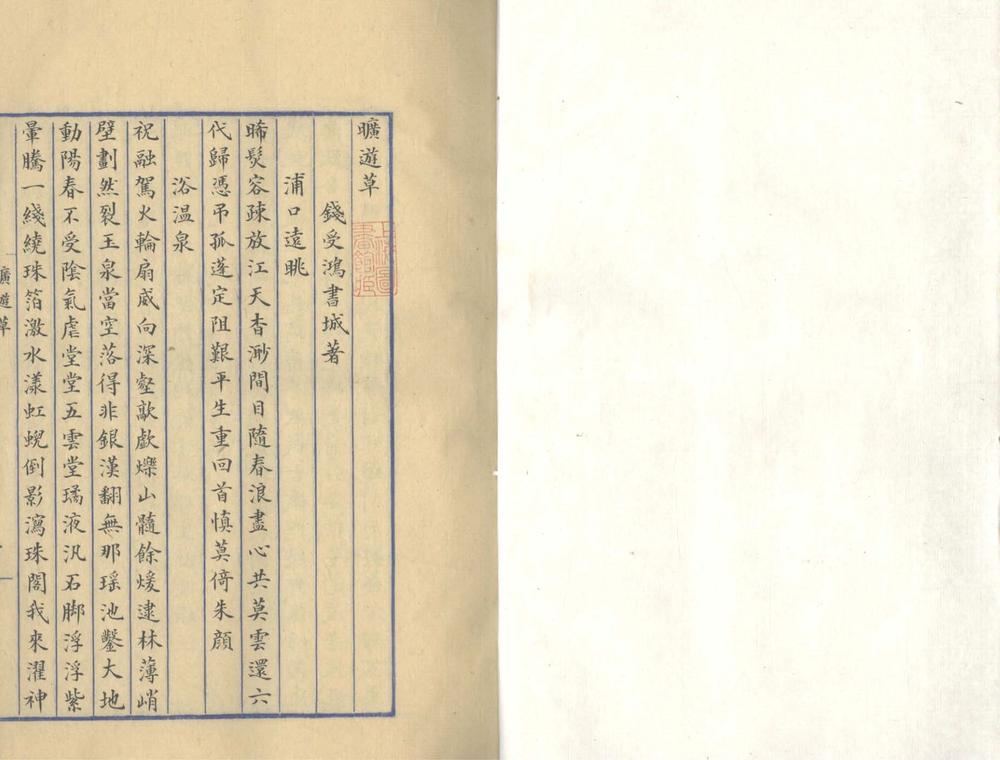 曠遊草
錢受鴻書城著
浦口遠眺
晞髮容疎放江天杳渺間目隨春浪盡心共莫雲還六
代歸憑吊孤蓬定阻艱平生重回首慎莫倚朱顏
浴溫泉
祝融駕火輪扇威向深壑歊歔爍山髓餘煖逮林薄峭
壁劃然裂玉泉當空落得非銀漢翻無那瑶池鑿大地
動陽春不受陰氣虐堂堂五雲堂璚液汎石脚浮浮紫
暈騰一綫繞珠箔激水漾虹蜺倒影瀉珠閣我來濯神
曠遊草